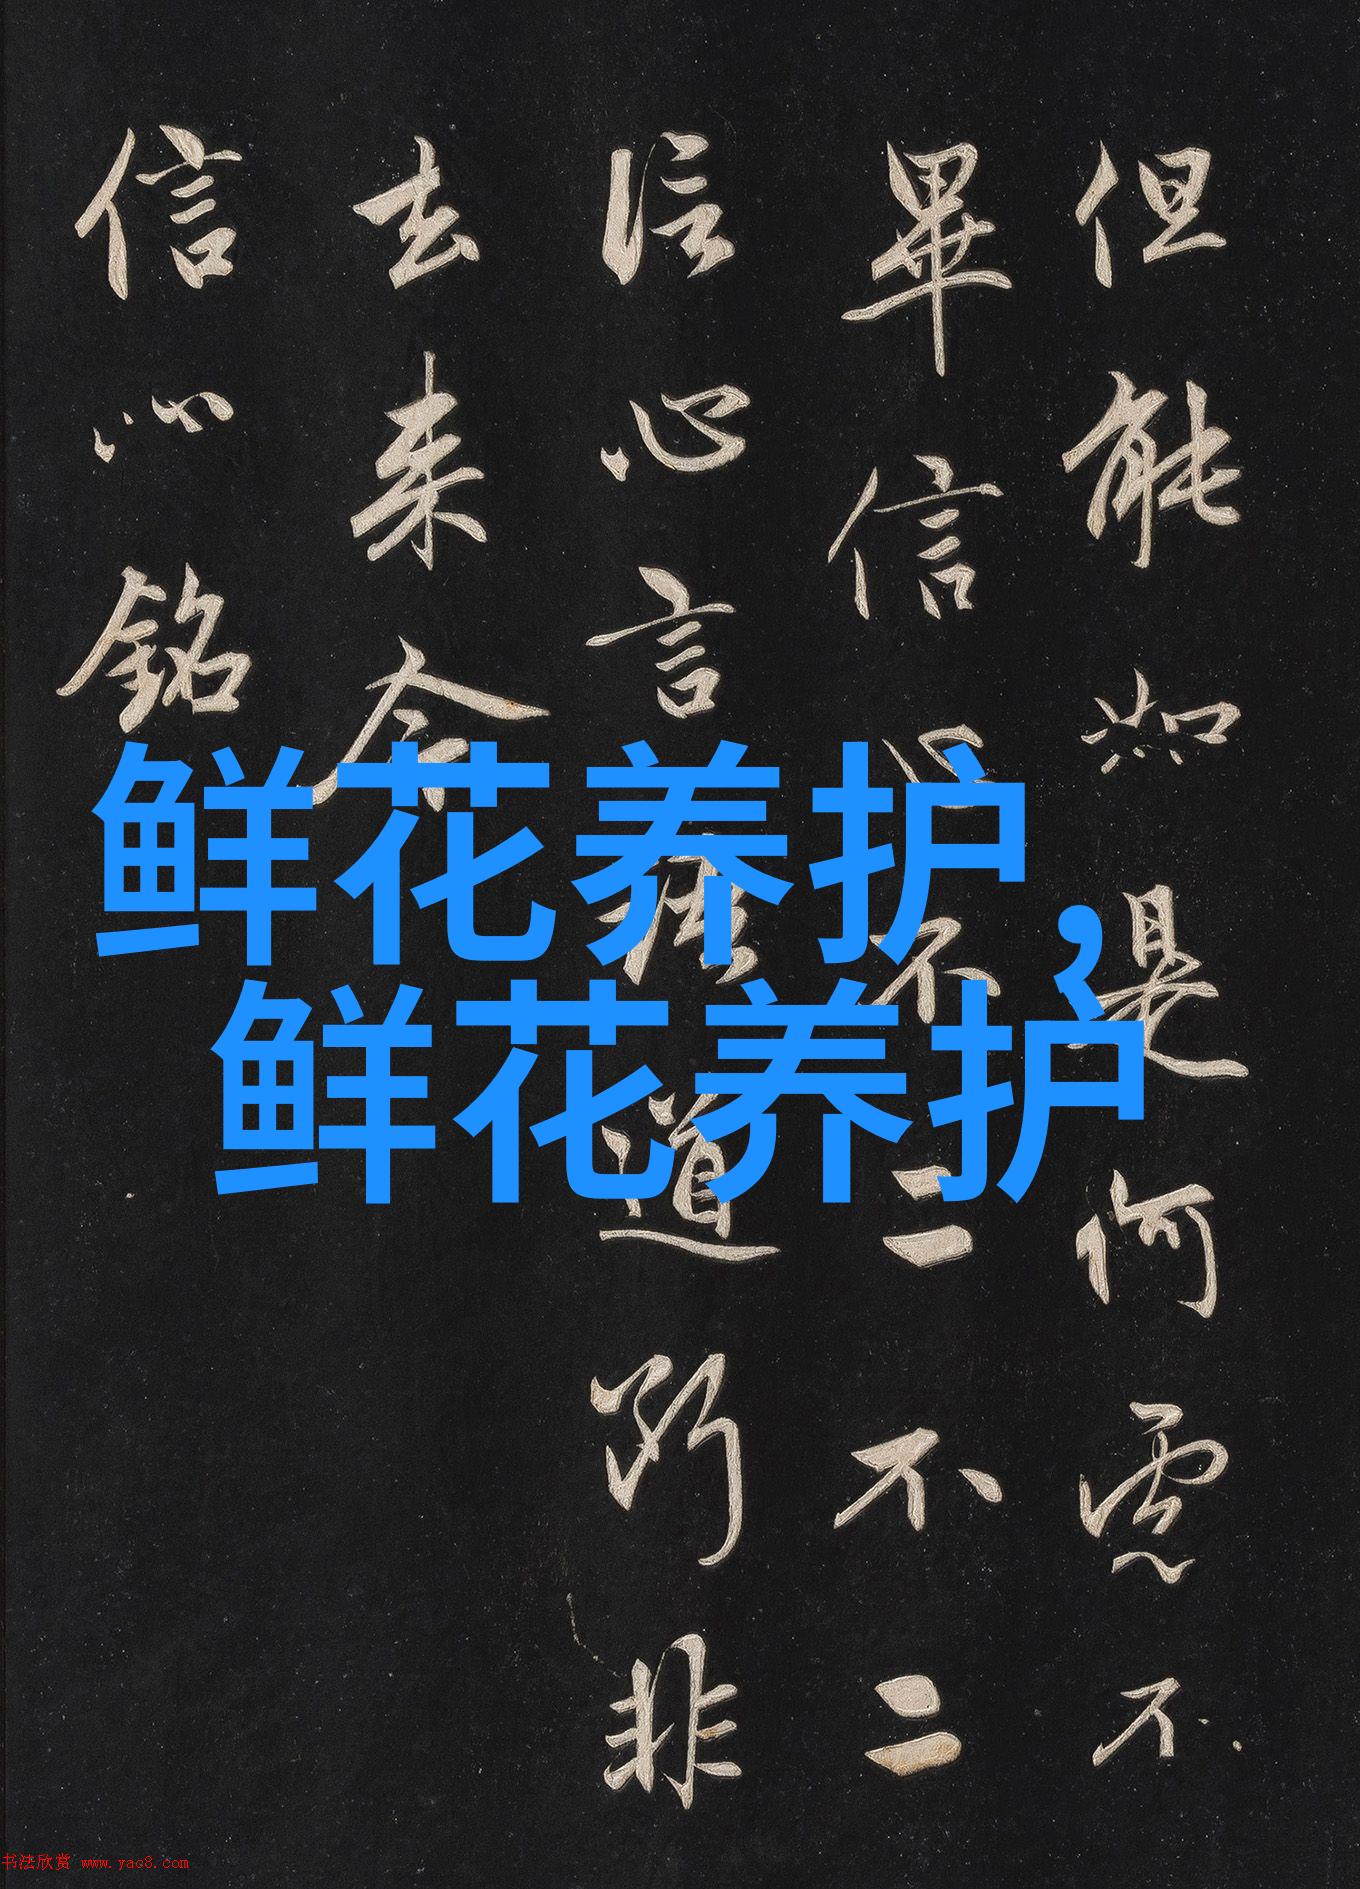 但能如是何慮不
畢信心不二不二
信心言語道斷非
去來今
信心銘
鲜花养护，
鲜花养护
书法欣赏 www.yac8.com